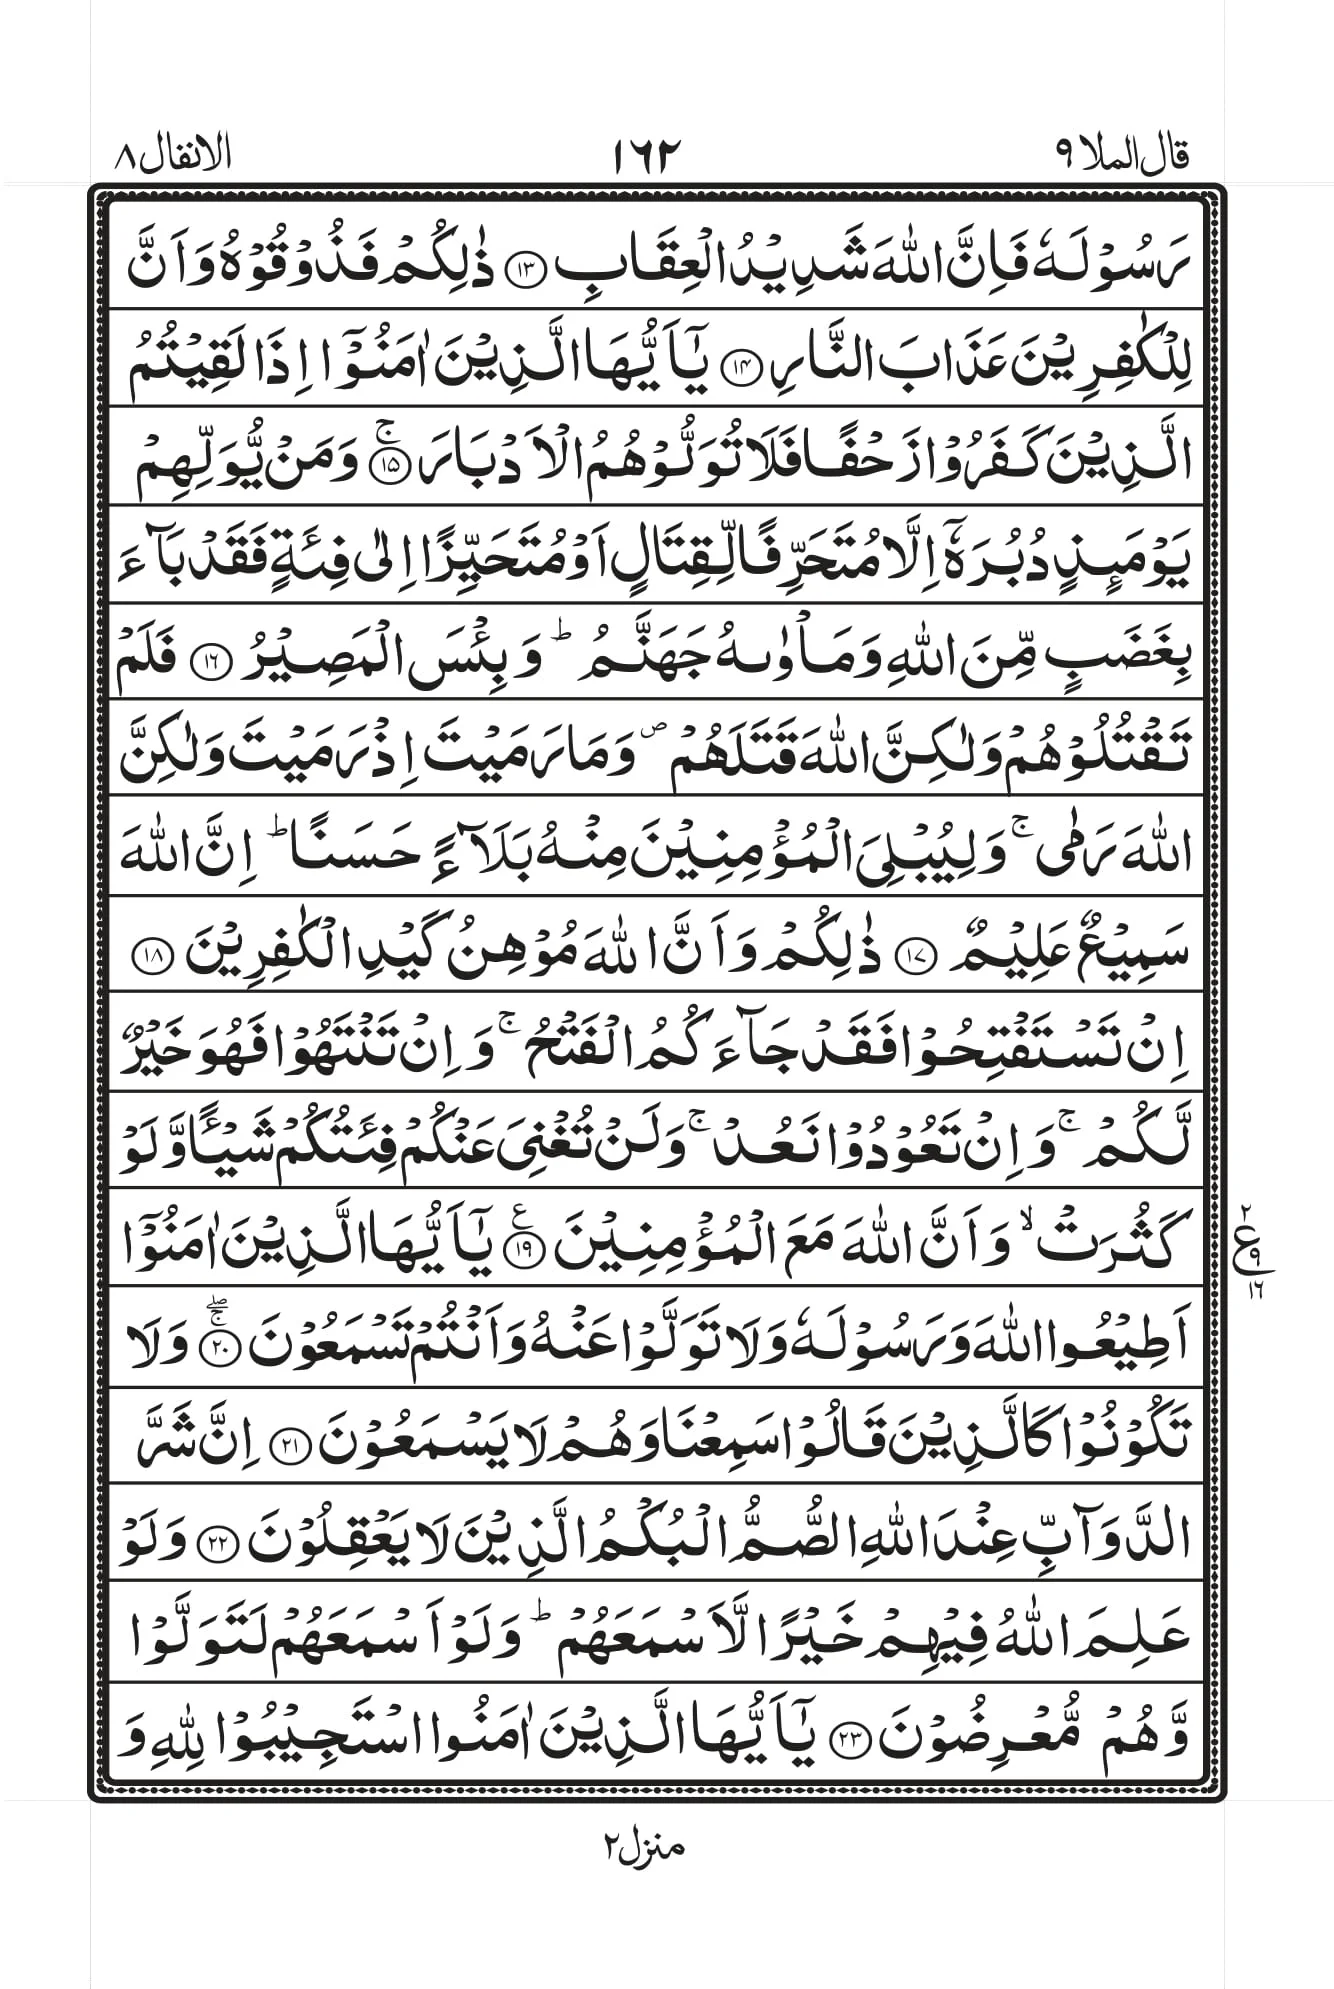 قال الملا ٩ ١٦٢ الانفال ٨
رَسُوۡلَهٗ فَاِنَّ اللّٰهَ شَدِيۡدُ الۡعِقَابِ ﴿۱۳﴾ ذٰلِكُمۡ فَذُوۡقُوۡهُ وَاَنَّ
لِلۡكٰفِرِيۡنَ عَذَابَ النَّارِ ﴿۱۴﴾ يٰۤاَيُّهَا الَّذِيۡنَ اٰمَنُوۡۤا اِذَا لَقِيۡتُمُ
الَّذِيۡنَ كَفَرُوۡا زَحۡفًا فَلَا تُوَلُّوۡهُمُ الۡاَدۡبَارَ‌ۚ‏ ﴿۱۵﴾ وَمَنۡ يُّوَلِّهِمۡ
يَوۡمَٮِٕذٍ دُبُرَهٗۤ اِلَّا مُتَحَرِّفًا لِّقِتَالٍ اَوۡ مُتَحَيِّزًا اِلٰى فِئَةٍ فَقَدۡ بَآءَ
بِغَضَبٍ مِّنَ اللّٰهِ وَمَاۡوٰٮهُ جَهَنَّمُ‌ؕ وَبِئۡسَ الۡمَصِيۡرُ ﴿۱۶﴾ فَلَمۡ
تَقۡتُلُوۡهُمۡ وَلٰـكِنَّ اللّٰهَ قَتَلَهُمۡ ص وَمَا رَمَيۡتَ اِذۡ رَمَيۡتَ وَلٰـكِنَّ
اللّٰهَ رَمٰى‌ۚ وَلِيُبۡلِىَ الۡمُؤۡمِنِيۡنَ مِنۡهُ بَلَاۤءً حَسَنًا‌ ؕ اِنَّ اللّٰهَ
سَمِيۡعٌ عَلِيۡمٌ ﴿۱۷﴾ ذٰلِكُمۡ وَاَنَّ اللّٰهَ مُوۡهِنُ كَيۡدِ الۡكٰفِرِيۡنَ ﴿۱۸﴾
اِنۡ تَسۡتَفۡتِحُوۡا فَقَدۡ جَآءَكُمُ الۡفَتۡحُ‌ۚ وَاِنۡ تَنۡتَهُوۡا فَهُوَ خَيۡرٌ
لَّـكُمۡ‌ۚ وَاِنۡ تَعُوۡدُوۡا نَـعُدۡ‌ۚ وَلَنۡ تُغۡنِىَ عَنۡكُمۡ فِئَتُكُمۡ شَيۡـًٔـا وَّلَوۡ
كَثُرَتۡۙ وَاَنَّ اللّٰهَ مَعَ الۡمُؤۡمِنِيۡنَ ﴿۱۹﴾ ع يٰۤاَيُّهَا الَّذِيۡنَ اٰمَنُوۡۤا
اَطِيۡعُوا اللّٰهَ وَرَسُوۡلَهٗ وَلَا تَوَلَّوۡا عَنۡهُ وَاَنۡـتُمۡ تَسۡمَعُوۡنَ ‌ۖ‌ۚ‏ ﴿۲۰﴾ وَلَا
تَكُوۡنُوۡا كَالَّذِيۡنَ قَالُوۡا سَمِعۡنَا وَهُمۡ لَا يَسۡمَعُوۡنَ ﴿۲۱﴾ اِنَّ شَرَّ
الدَّوَآبِّ عِنۡدَ اللّٰهِ الصُّمُّ الۡبُكۡمُ الَّذِيۡنَ لَا يَعۡقِلُوۡنَ ﴿۲۲﴾ وَلَوۡ
عَلِمَ اللّٰهُ فِيۡهِمۡ خَيۡرًا لَّاَسۡمَعَهُمۡ‌ؕ وَلَوۡ اَسۡمَعَهُمۡ لَـتَوَلَّوۡا
وَّهُمۡ مُّعۡرِضُوۡنَ ﴿۲۳﴾ يٰۤاَيُّهَا الَّذِيۡنَ اٰمَنُوا اسۡتَجِيۡبُوۡا لِلّٰهِ وَ
٢
ع
٩
١٦
منزل ٢